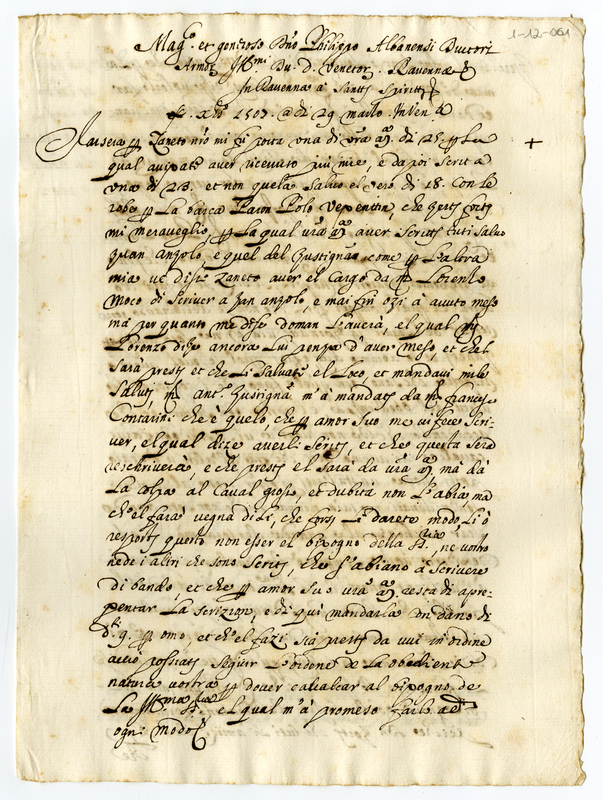 1-12-061
Mag.co et generoso Dño Philippo Albanensi Ductori
Armor Ill.mi Du. D. Venetor Ravennæ
In Ravenna a Santo Spirito
1507. a di 29 mazo In Ven.a
Zaneto nro mi fo porta una di vra di 25
qual avixate aver ricevuto più mie, e da poi scrita
una di 23. et non quela salvo el vero di 18. Con le
robe La barca Paron Polo Vexentin, che
mi meraveglio, La qual vra aver scrito tuti salvo
zuan anzolo, e quel del Gustignan come L'altra
mia ve disse Zaneto aver el Cargo da Lorenzo
Moco di scriver a zan anzolo, e mai fin ozi à avuto meso
ma per quanto me disse doman L'averà, el qual
Lorenzo dize ancora lui penza d'aver meso, et chel
sarà presto et che li salvate el Loco, et mandavi mile
saluti, ant.o Gustignan m'à mandato da francesco
Contarini che è quelo, che amor suo me vi fece scri-
ver, el qual dize averli scrito, et che questa sera
rescriverà, e che presto el sarà da vra ma dà
La colpa al Caval grosso, et dubita non L'abia, ma
ch'el farà vegna di li, che forsi Li darete modo, li ò
resposto questo non esser el bisogno della ne vostro
nede i altri che sono scrito, che s'abiano a scrivere
di bando, et che amor suo vra resta di apre-
sentar La scrizion, e di qui mandarla un dano di
9. omo, et ch'el fazi sia presto da vui in ordine
aciò possiate seguir L'ordene de La obediente
natura vostra dover cavalcar al bisogno de
La Ill.ma S.ria el qual m'à promeso farlo ad
ogni modo